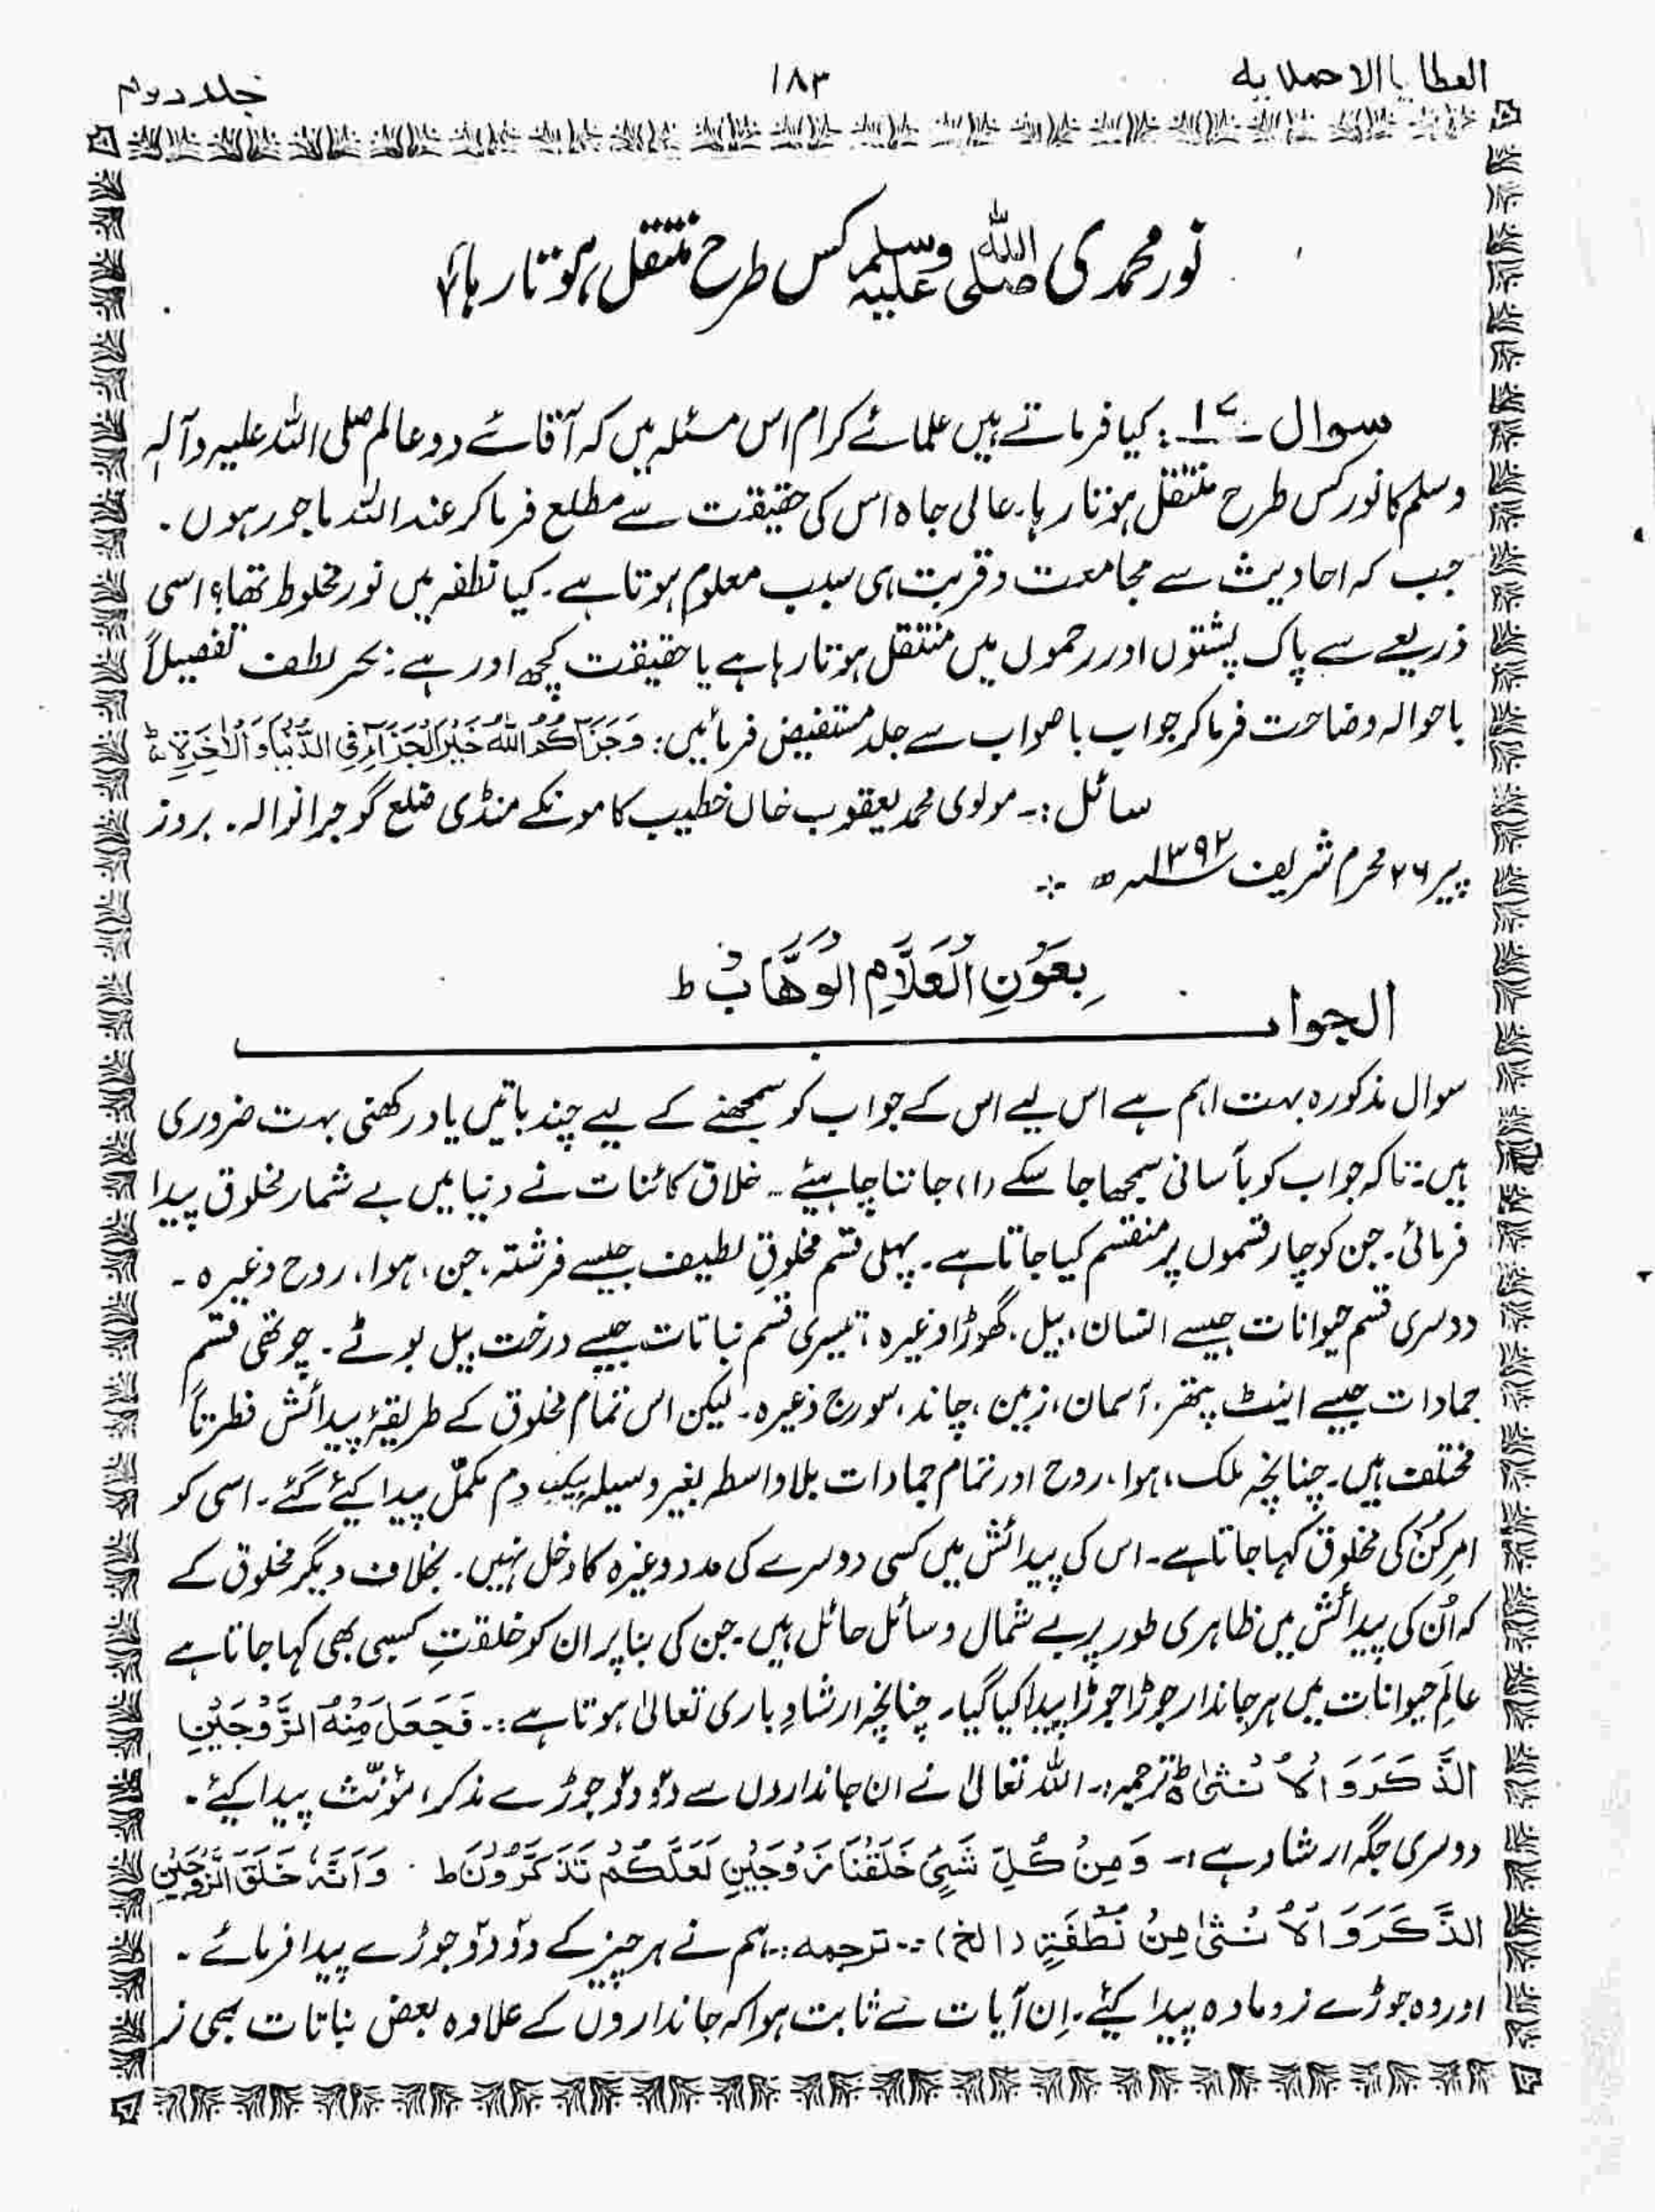 العطایا الاحمدیہ
۱۸۳
جلد دوم
نور محمدی صلی اللہ علیہ وسلم کس طرح منتقل ہوتا رہا؟
سوال ۱۷: کیا فرماتے ہیں علمائے کرام اس مسئلہ میں کہ آقائے دو عالم صلی اللہ علیہ وآلہٖ
وسلم کا نور کس طرح منتقل ہوتا رہا۔ عالی جاہ اس کی حقیقت سے مطلع فرما کر عند اللہ ماجور ہوں۔
جب کہ احادیث سے مجامعت و قربت ہی سبب معلوم ہوتا ہے۔ کیا نطفہ میں نور مخلوط تھا؟ اسی
ذریعے سے پاک پشتوں اور رحموں میں منتقل ہوتا رہا ہے یا حقیقت کچھ اور ہے: بحر لطف تفصیلاً
باحوالہ وضاحت فرما کر جواب باصواب سے جلد مستفیض فرمائیں: وَجَزَاکُمُ اللّٰہُ خَیْرَ الْجَزَآءِ فِی الدُّنْیَا وَ الْاٰخِرَۃِ ط
سائل:۔ مولوی محمد یعقوب خاں خطیب کامونکے منڈی ضلع گوجرانوالہ۔ بروز
پیر ۲۶ محرم شریف ۱۳۹۲ھ
بِعَوْنِ الْعَلَّامِ الْوَھَّابْ ط
الجواب
سوال مذکورہ بہت اہم ہے اس لیے اس کے جواب کو سمجھنے کے لیے چند باتیں یاد رکھنی بہت ضروری
ہیں: تاکہ جواب کو بآسانی سمجھا جا سکے (۱) جاننا چاہیئے۔ خلاق کائنات نے دنیا میں بے شمار مخلوق پیدا
فرمائی۔ جن کو چار قسموں پر منقسم کیا جاتا ہے۔ پہلی قسم مخلوقِ لطیف جیسے فرشتہ، جن، ہوا، روح وغیرہ۔
دوسری قسم حیوانات جیسے انسان، بیل، گھوڑا وغیرہ: تیسری قسم نباتات جیسے درخت بیل بوٹے۔ چوتھی قسم
جمادات جیسے اینٹ پتھر، آسمان، زمین، چاند، سورج وغیرہ۔ لیکن اس تمام مخلوق کے طریقۂ پیدائش فطرتاً
مختلف ہیں۔ چنانچہ ملک، ہوا، روح اور تمام جمادات بلاواسطہ بغیر وسیلہ یکب دم مکمّل پیدا کیئے گئے۔ اسی کو
امرِ کُنْ کی مخلوق کہا جاتا ہے۔ اس کی پیدائش میں کسی دوسرے کی مدد وغیرہ کا دخل نہیں۔ بخلاف دیگر مخلوق کے
کہ اُن کی پیدائش میں ظاہری طور پر بے شمال وسائل حائل ہیں۔ جن کی بنا پر ان کو خلقتِ کسبی بھی کہا جاتا ہے
عالَمِ حیوانات میں ہر جاندار جوڑا جوڑا پیدا کیا گیا۔ چنانچہ ارشادِ باری تعالیٰ ہوتا ہے:۔ فَجَعَلَ مِنْہُ الزَّوْجَیْنِ
الذَّکَرَ وَ الْاُنْثٰی ط ترجمہ:۔ اللہ تعالیٰ نے ان جانداروں سے دو دو جوڑے مذکر، مؤنّث پیدا کیئے۔
دوسری جگہ ارشاد ہے:۔ وَ مِنْ کُلِّ شَیْئٍ خَلَقْنَا زَوْجَیْنِ لَعَلَّکُمْ تَذَکَّرُوْنَ ط وَ اَنَّہٗ خَلَقَ الزَّوْجَیْنِ
الذَّکَرَ وَ الْاُنْثٰی مِنْ نُّطْفَۃٍ (الخ)۔ ترجمہ:۔ ہم نے ہر چیز کے دو دو جوڑے پیدا فرمائے۔
اور وہ جوڑے نر و مادہ پیدا کیئے۔ اِن آیات سے ثابت ہوا کہ جانداروں کے علاوہ بعض نباتات بھی نر